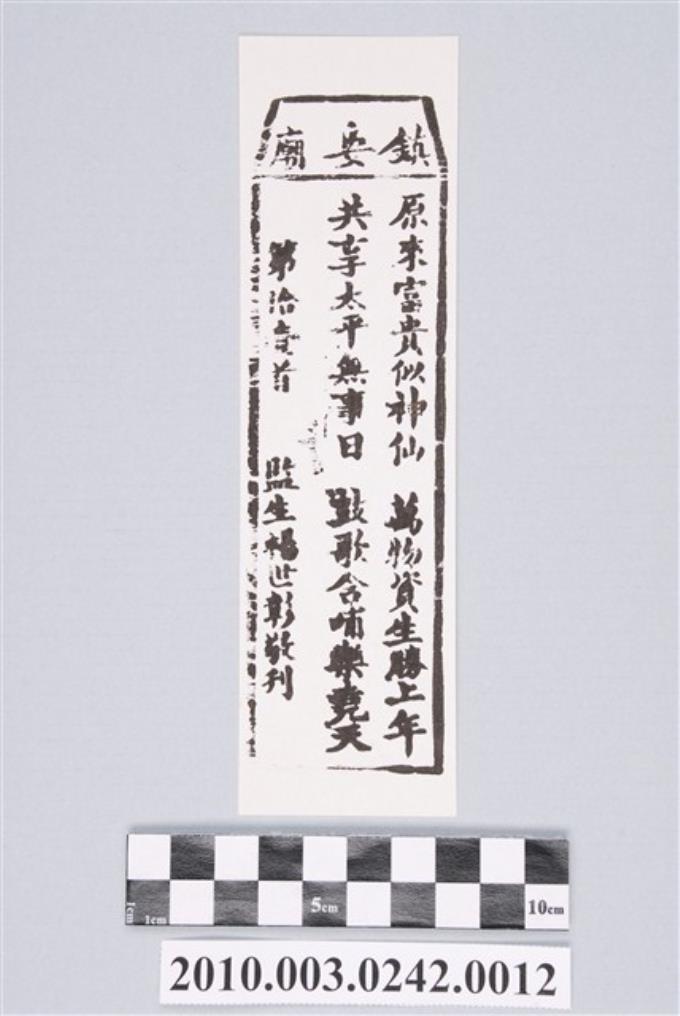 鎮安廟
原來富貴似神仙 萬物資生勝上年
共享太平無事日 鼓歌含哺樂堯天
第拾壹首 監生楊世彰敬刊
1cm 1cm 5cm 10cm
2010.003.0242.0012